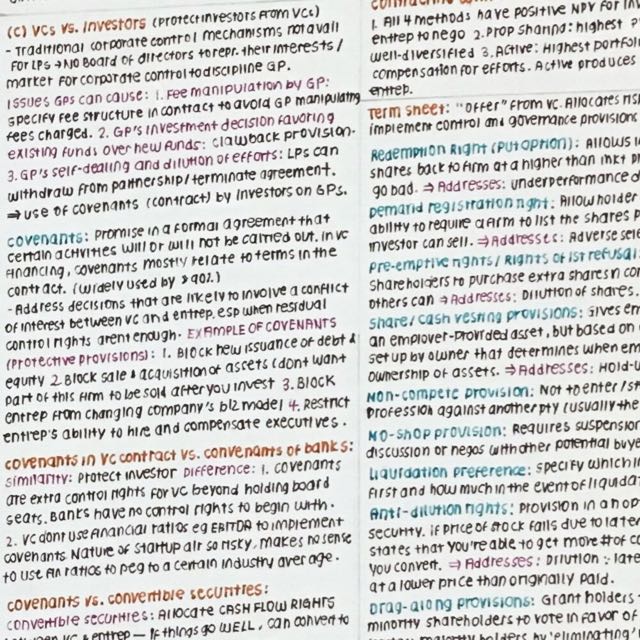 (C) VCs VS. INVESTORS (PROTECT INVESTORS FROM VCs)
- Traditional corporate control mechanisms not avail
for LPs → NO Board of directors to repr. their interests /
market for corporate control to discipline GP.
ISSUES GPs can cause: 1. Fee manipulation by GP:
specify fee structure in contract to avoid GP manipulating
fees charged. 2. GP's investment decision favoring
existing funds over new funds: clawback provision.
3. GP's self-dealing and dilution of efforts: LPs can
withdraw from partnership/terminate agreement.
⇒ use of covenants (contract) by investors on GPs.
covenants: Promise in a formal agreement that
certain activities will or will not be carried out. In VC
financing, covenants mostly relate to terms in the
contract. (widely used by >90%)
- Address decisions that are likely to involve a conflict
of interest between VC and entrep, esp when residual
control rights arent enough. EXAMPLE OF COVENANTS
(Protective provisions): 1. Block new issuance of debt &
equity 2. Block sale & acquisition of assets (dont want
part of this firm to be sold after you invest 3. Block
entrep from changing company's biz model 4. Restrict
entrep's ability to hire and compensate executives.
covenants in VC contract vs. convenants of banks:
similarity: protect investor Difference: 1. covenants
are extra control rights for VC beyond holding board
seats. Banks have no control rights to begin with.
2. VC dont use financial ratios eg EBITDA to implement
covenants. Nature of startup air so risky, makes no sense
to use fin ratios to peg to a certain industry average.
covenants vs. convertible securities:
convertible securities: Allocate CASH FLOW RIGHTS
between VC & entrep — If things go WELL, can convert to
1. All 4 methods have positive NPV for
entrep to nego 2. Prop sharing: highest
well-diversified 3. Active: Highest
compensation for efforts. Active produces
entrep.
Term sheet: "Offer" from VC. Allocates
implement control and governance provisions
Redemption Right (Put option): Allows
shares back to firm at a higher than mkt
go bad. ⇒ Addresses: underperformance
Demand registration right: Allow holder
ability to require a firm to list the shares
investor can sell. ⇒ Addresses: Adverse
Pre-emptive rights / Rights of 1st refusal:
shareholders to purchase extra shares in
others can ⇒ Addresses: Dilution of shares.
share/cash vesting provisions: Gives
an employer-provided asset, but based on
set up by owner that determines when
ownership of assets. ⇒ Addresses:
Non-compete provision: Not to enter/
profession against another pty (usually the
No-shop provision: Requires
discussion or negos with other potential
Liquidation preference: specify which
first and how much in the event of
Anti-dilution rights: Provision in a
security. If price of stock falls due to
states that you're able to get more # of
you convert. ⇒ Addresses: Dilution ∵
at a lower price than originally paid.
Drag-along provisions: Grant holders
minority shareholders to vote in favor of
majority holders by 'eliminating'